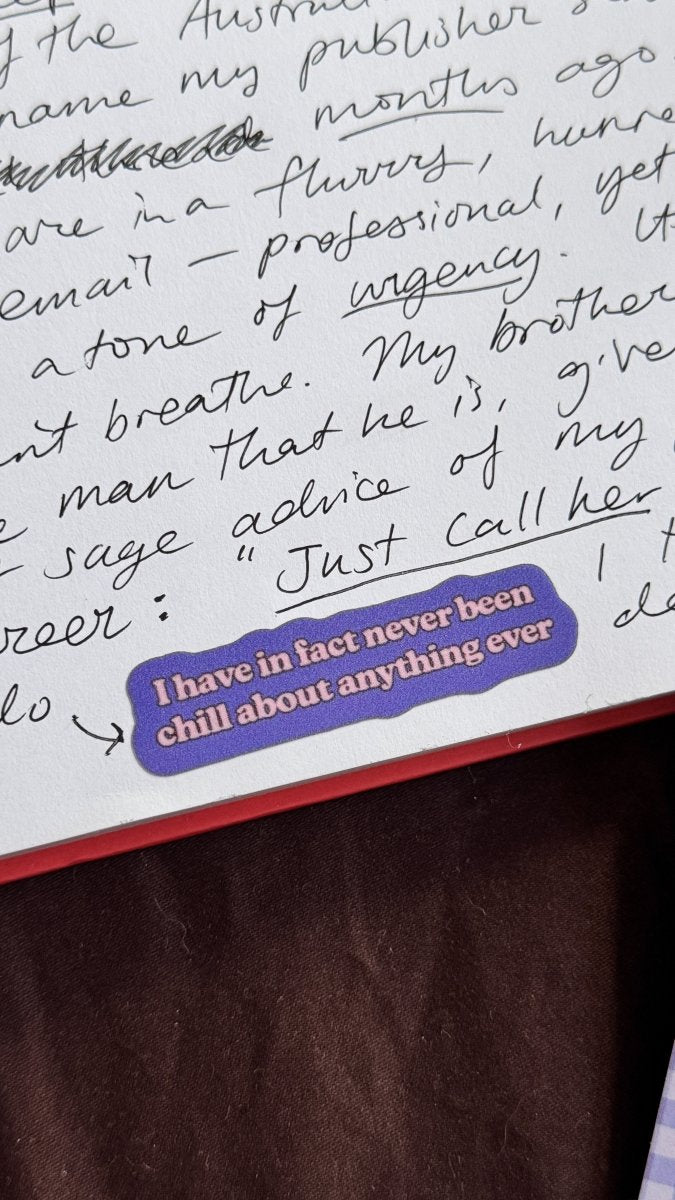 the Austral
name my publisher
months ago
are in a flurry,
email — professional, yet
a tone of urgency.
breathe. My brother
man that he is, give
sage advice of my
: "Just call her
I have in fact never been
chill about anything ever